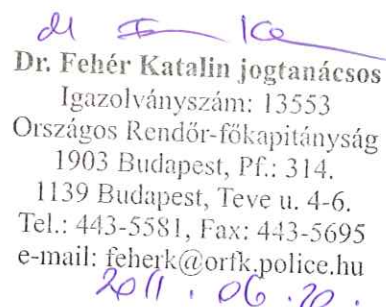 Dr. Fehér Katalin jogtanácsos
Igazolványszám: 13553
Országos Rendőr-főkapitányság
1903 Budapest, Pf.: 314.
1139 Budapest, Teve u. 4-6.
Tel.: 443-5581, Fax: 443-5695
e-mail: feherk@orfk.police.hu
2011. 06. 20.